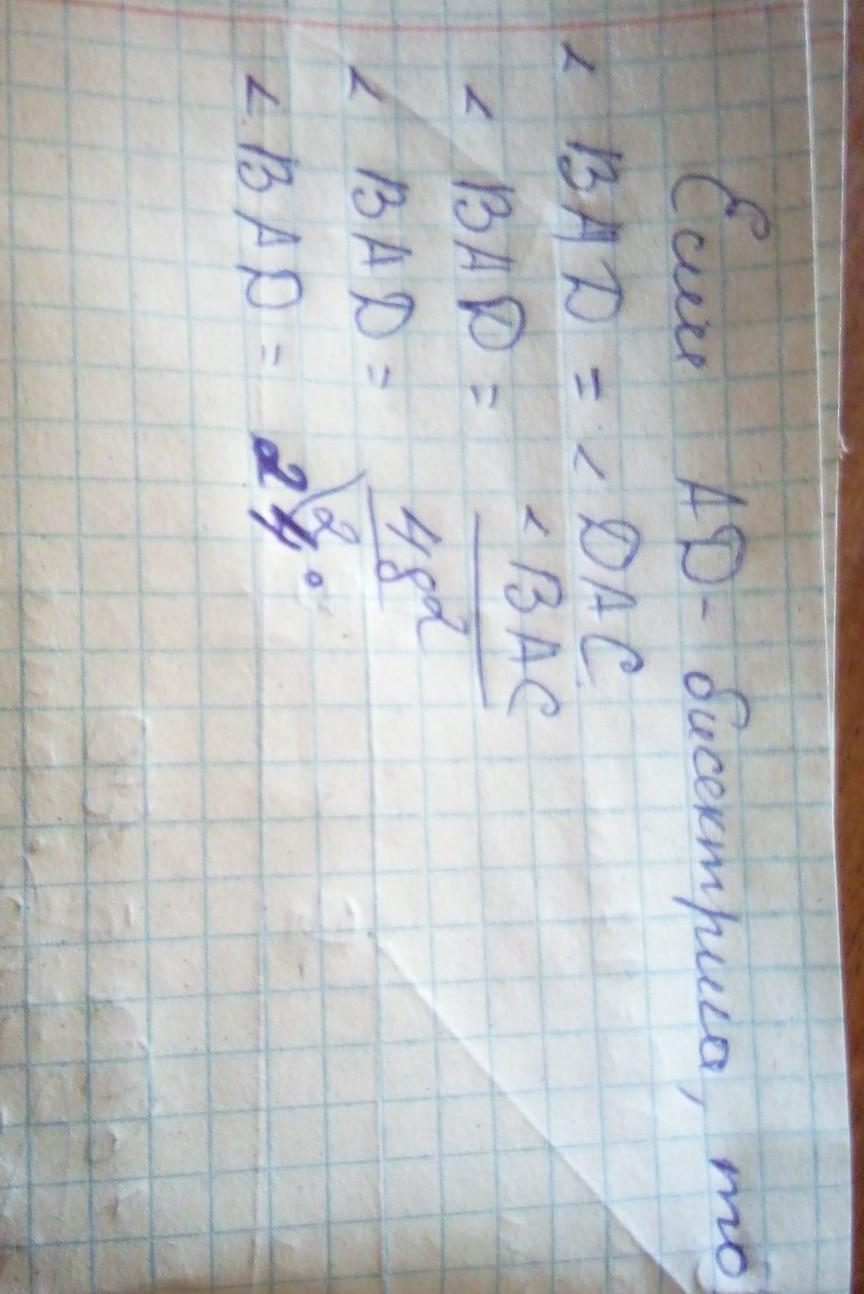 Если AD - бисектриса, то
∠ BAD = ∠ DAC
∠ BAD = ∠ BAC
∠ BAD = 48 2
2
∠ BAD = 24°